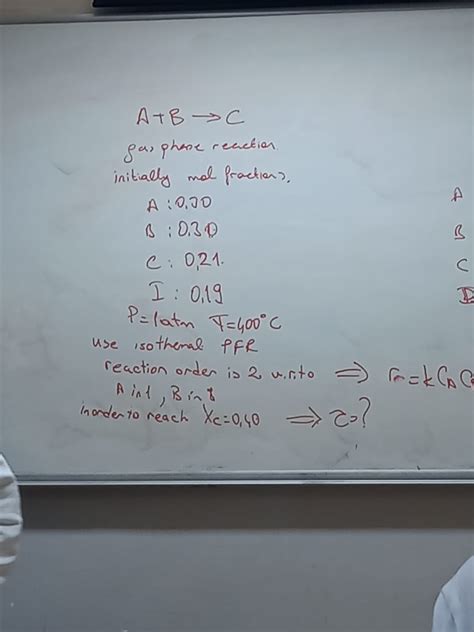 A+B → C
gas phase reaction
initially mol fractions,
A : 0,30
B : 0,30
C : 0,21
I : 0,19
P=1atm T=400°C
use isothermal PFR
reaction order is 2 w.r.to ⇒ = k CA C
A in 1, B in 1
in order to reach Xc=0,40 ⇒ τ=?
A
B
C